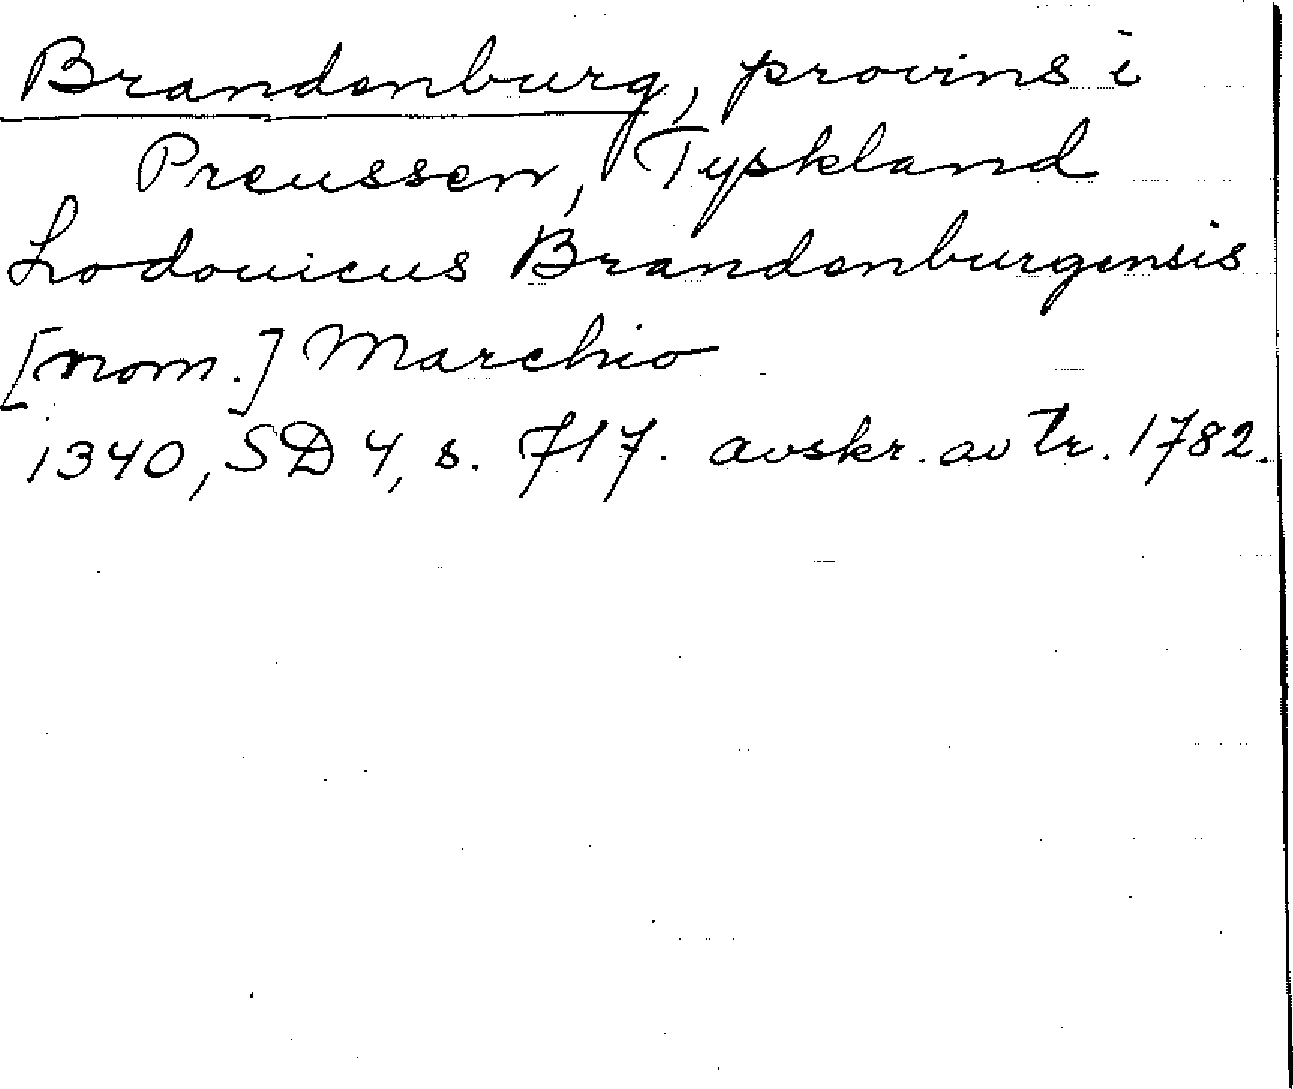 Brandenburg, provins i
Preussen, Tyskland
Lodouicus Brandenburgensis
[nom.] Marchio
1340, SD 4, s. 717. avskr. av tr. 1782.